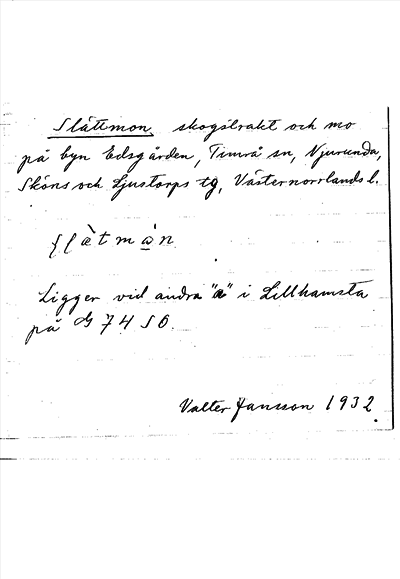 Slåttmon, skogstrakt och mo
på byn Edsgården, Timrå sn, Njurunda,
Sköns och Ljustorps tg, Västernorrlands l.
Ligger vid andra "a" i Lillhamsta
på G 74 SO.
Valter Jansson 1932.